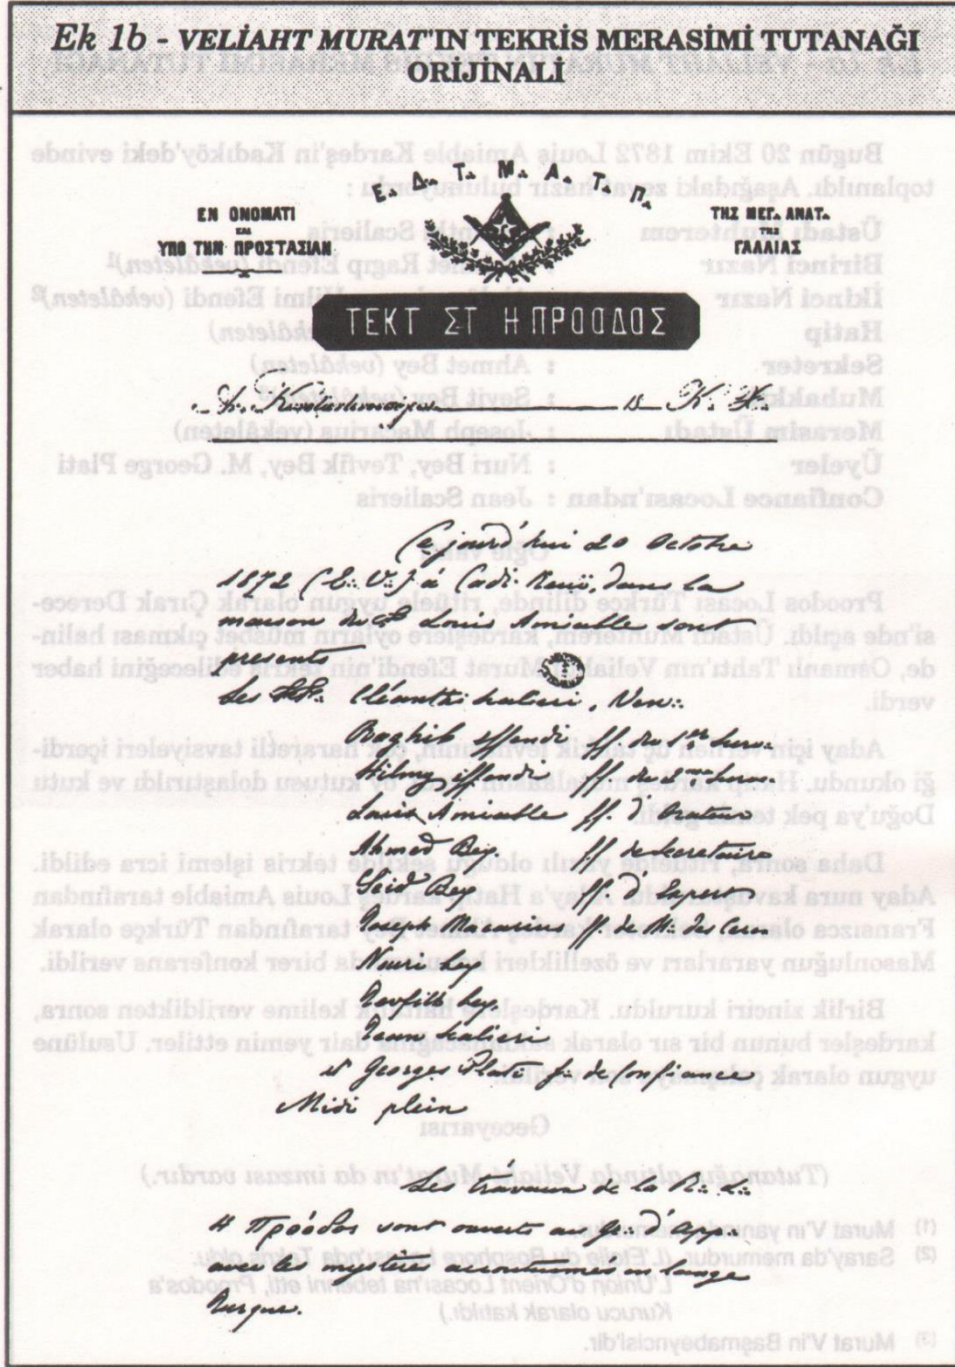 Ek 1b - VELİAHT MURAT'IN TEKRİS MERASİMİ TUTANAĞI
ORİJİNALİ
Ε∴ Δ∴ Τ∴ Μ∴ Α∴ Τ∴ Π∴
ΕΝ ΟΝΟΜΑΤΙ
ΚΑΙ
ΥΠΟ ΤΗΝ ΠΡΟΣΤΑΣΙΑΝ
ΤΗΣ ΜΕΓ. ΑΝΑΤ.
ΤΗΣ
ΓΑΛΛΙΑΣ
ΤΕΚΤ ΣΤ Η ΠΡΟΟΔΟΣ
Ce jourd'hui 20 Octobre
1872 (E∴ V∴) à Cadi-Keuï, dans la
maison du F∴ Louis Amiable sont
présents
Les FF∴ Cléanthi Scalieri, Ven∴
Raghib effendi ff. du 1er surv.
Hilmy effendi ff. du 2me surv.
Louis Amiable ff. d'Orateur
Ahmed Bey. ff. de Secretaire
Seid Bey ff. d'Expert
Joseph Macarius ff. de M. des Cerem
Nouri bey
Tevfik bey.
Jean Scalieri
et Georges Plati de confiance
Midi plein
Les travaux de la R∴ L∴
Η Πρόοδος sont ouverts au d'App∴
avec les mystères accoutumés en langue
Turque.